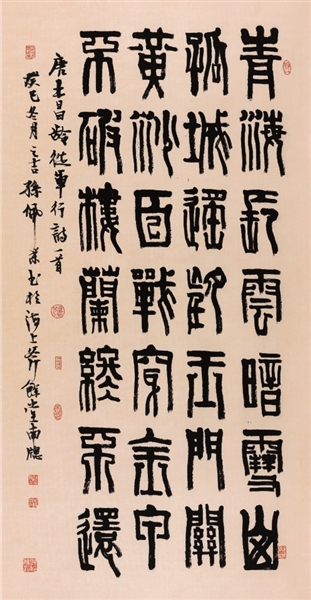 青海長雲暗雪山
孤城遙望玉門關
黃沙百戰穿金甲
不破樓蘭終不還
唐王昌齡從軍行詩一首
癸巳冬月之吉孫佩 書於海上 餘 南牕